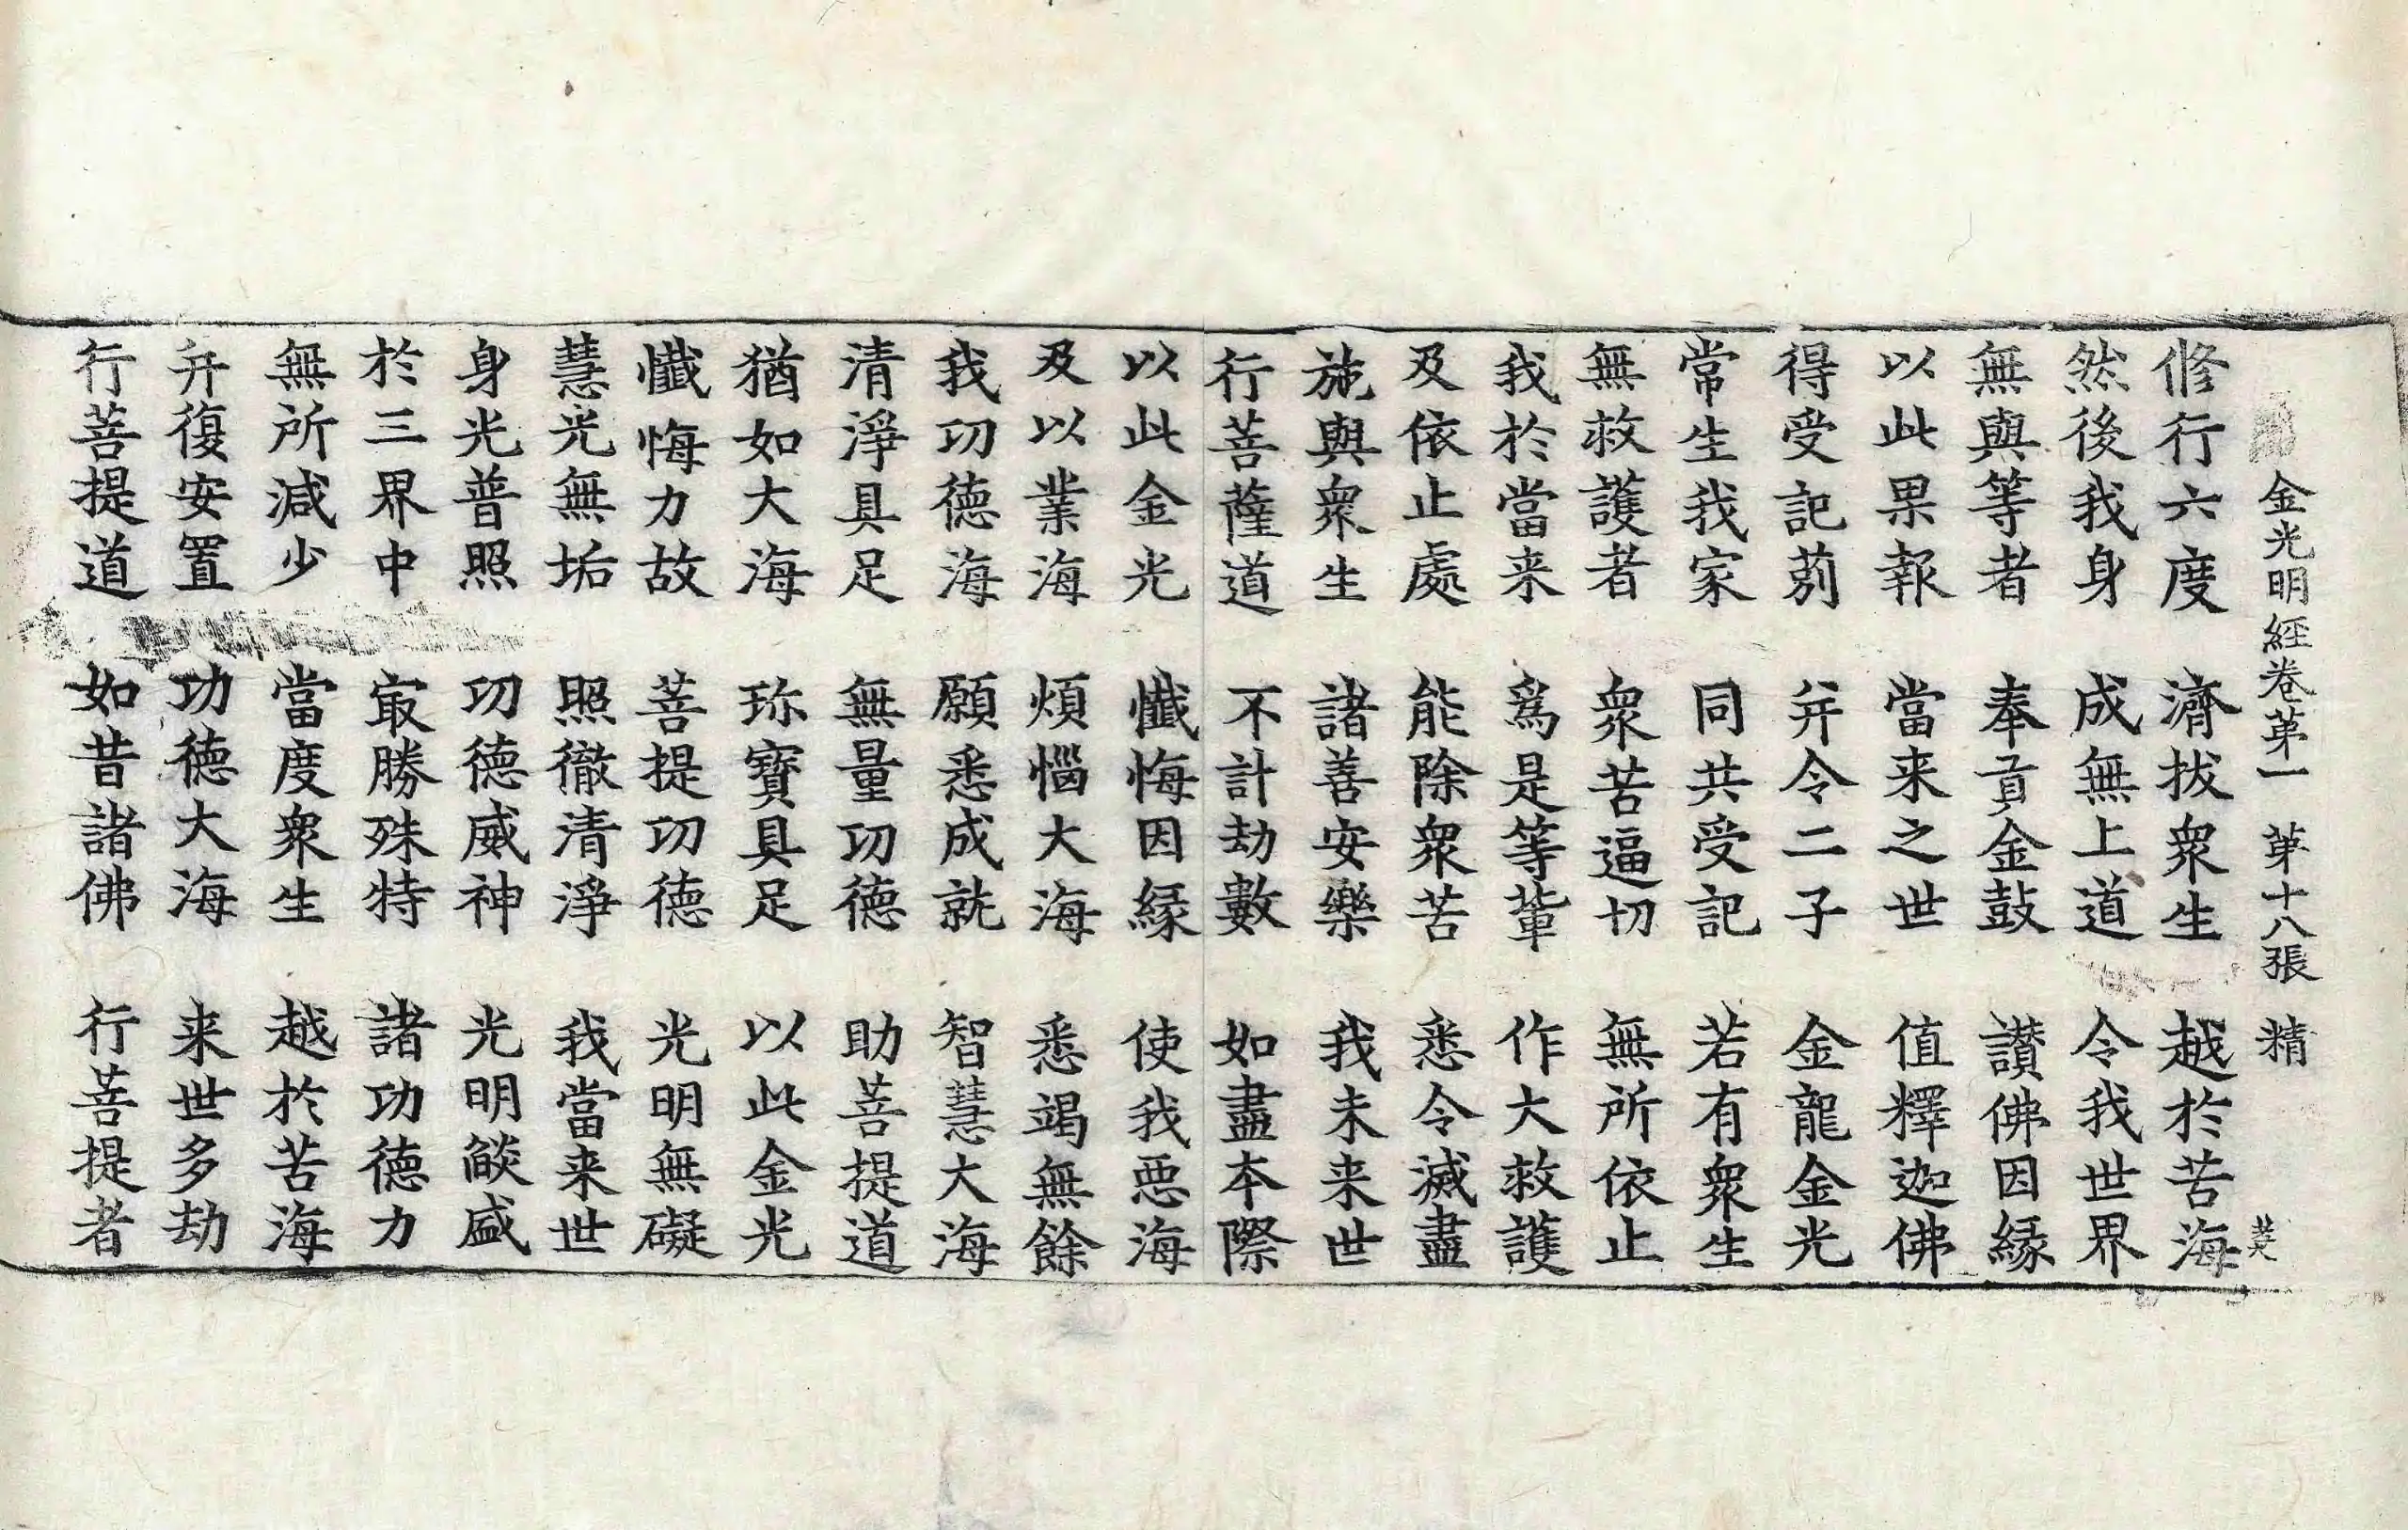 金光明經卷第一　第十八張　精
修行六度　濟拔衆生　越於苦海
然後我身　成無上道　令我世界
無與等者　奉貢金鼓　讃佛因縁
以此果報　當来之世　值釋迦佛
得受記莂　并令二子　金龍金光
常生我家　同共受記　若有衆生
無救護者　衆苦逼切　無所依止
我於當来　爲是等輩　作大救護
及依止處　能除衆苦　悉令滅盡
施與衆生　諸善安樂　我未来世
行菩薩道　不計劫數　如盡本際
以此金光　懺悔因縁　使我惡海
及以業海　煩惱大海　悉竭無餘
我功德海　願悉成就　智慧大海
清淨具足　無量功德　助菩提道
猶如大海　珎寶具足　以此金光
懺悔力故　菩提功德　光明無礙
慧光無垢　照徹清淨　我當来世
身光普照　功德威神　光明燄盛
於三界中　㝡勝殊特　諸功德力
無所減少　當度衆生　越於苦海
并復安置　功德大海　来世多劫
行菩提道　如昔諸佛　行菩提者